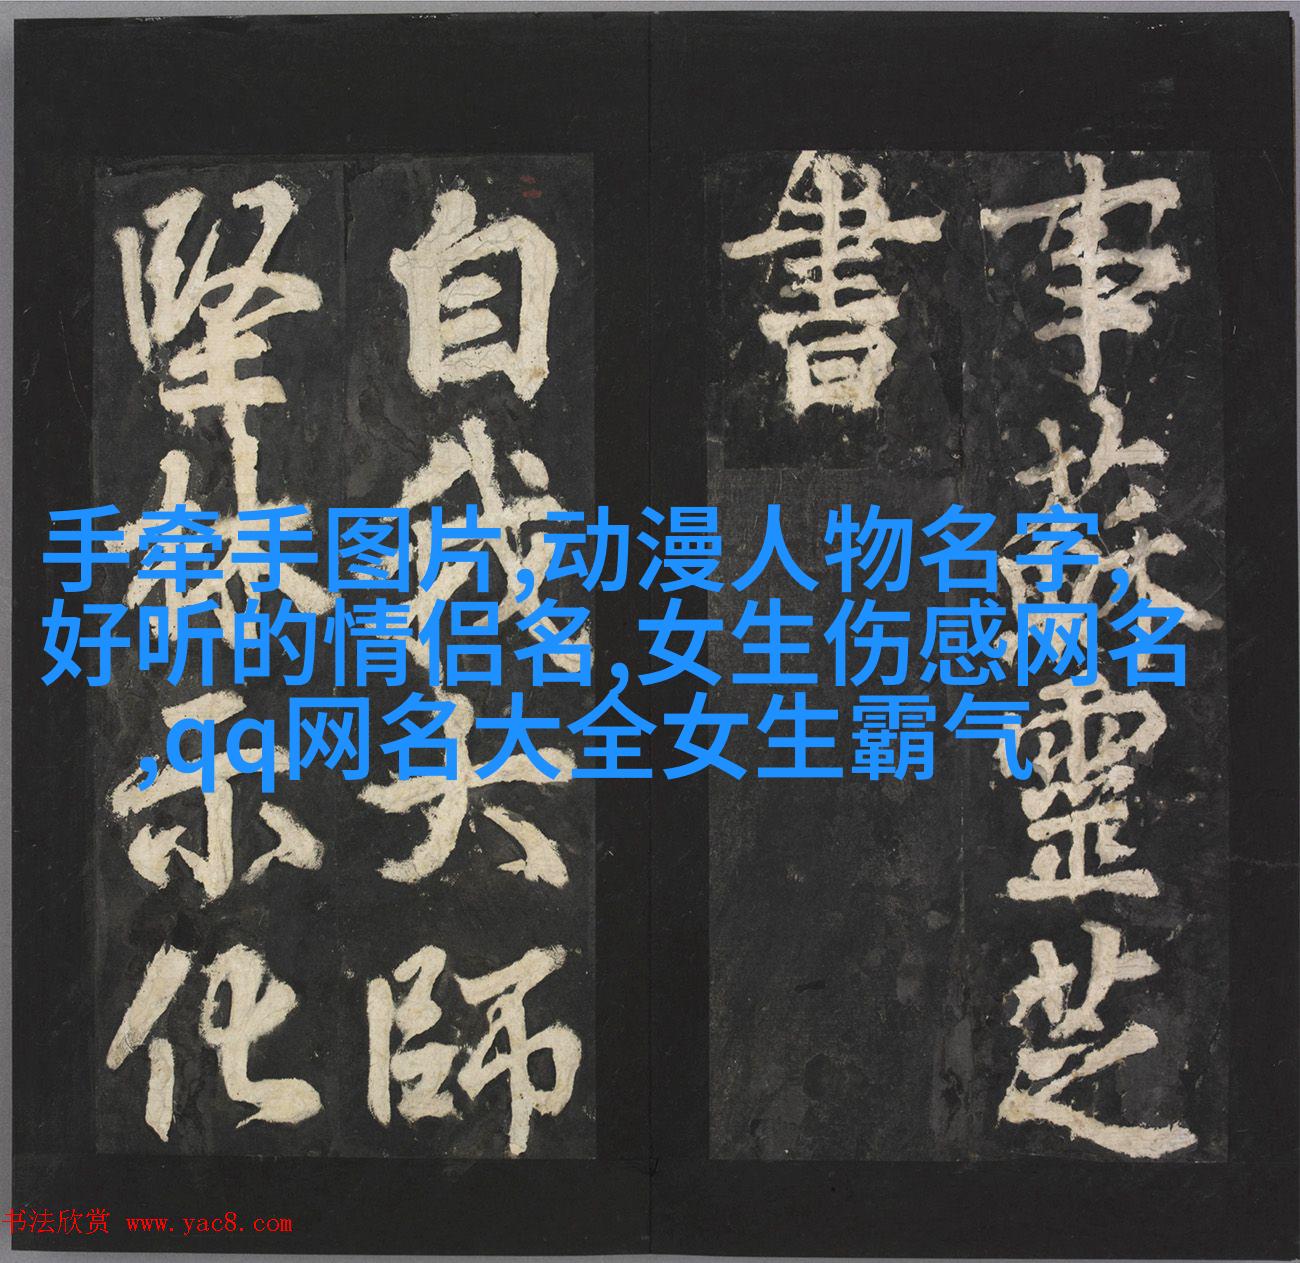 事蘇靈芝
書
自我大師
堅林示化
手牵手图片,动漫人物名字,
好听的情侣名,女生伤感网名
,qq网名大全女生霸气
书法欣赏 www.yac8.com